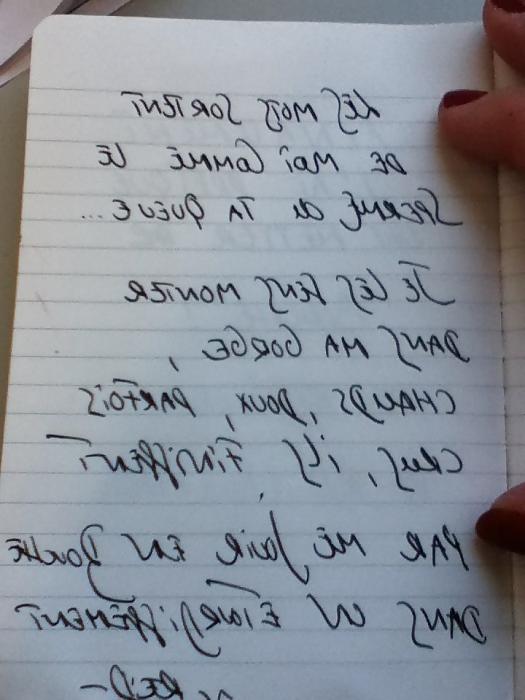 LES MOTS SORTENT
DE MOI COMME LE
SPERME TA QUEUE...
JE LES SENS MONTER
DANS MA GORGE,
CHAUDS, DOUX, PARFOIS
CRUS, ILS FINISSENT
PAR ME JOUIR EN BOUCHE
DANS UN ETOURDISSEMENT